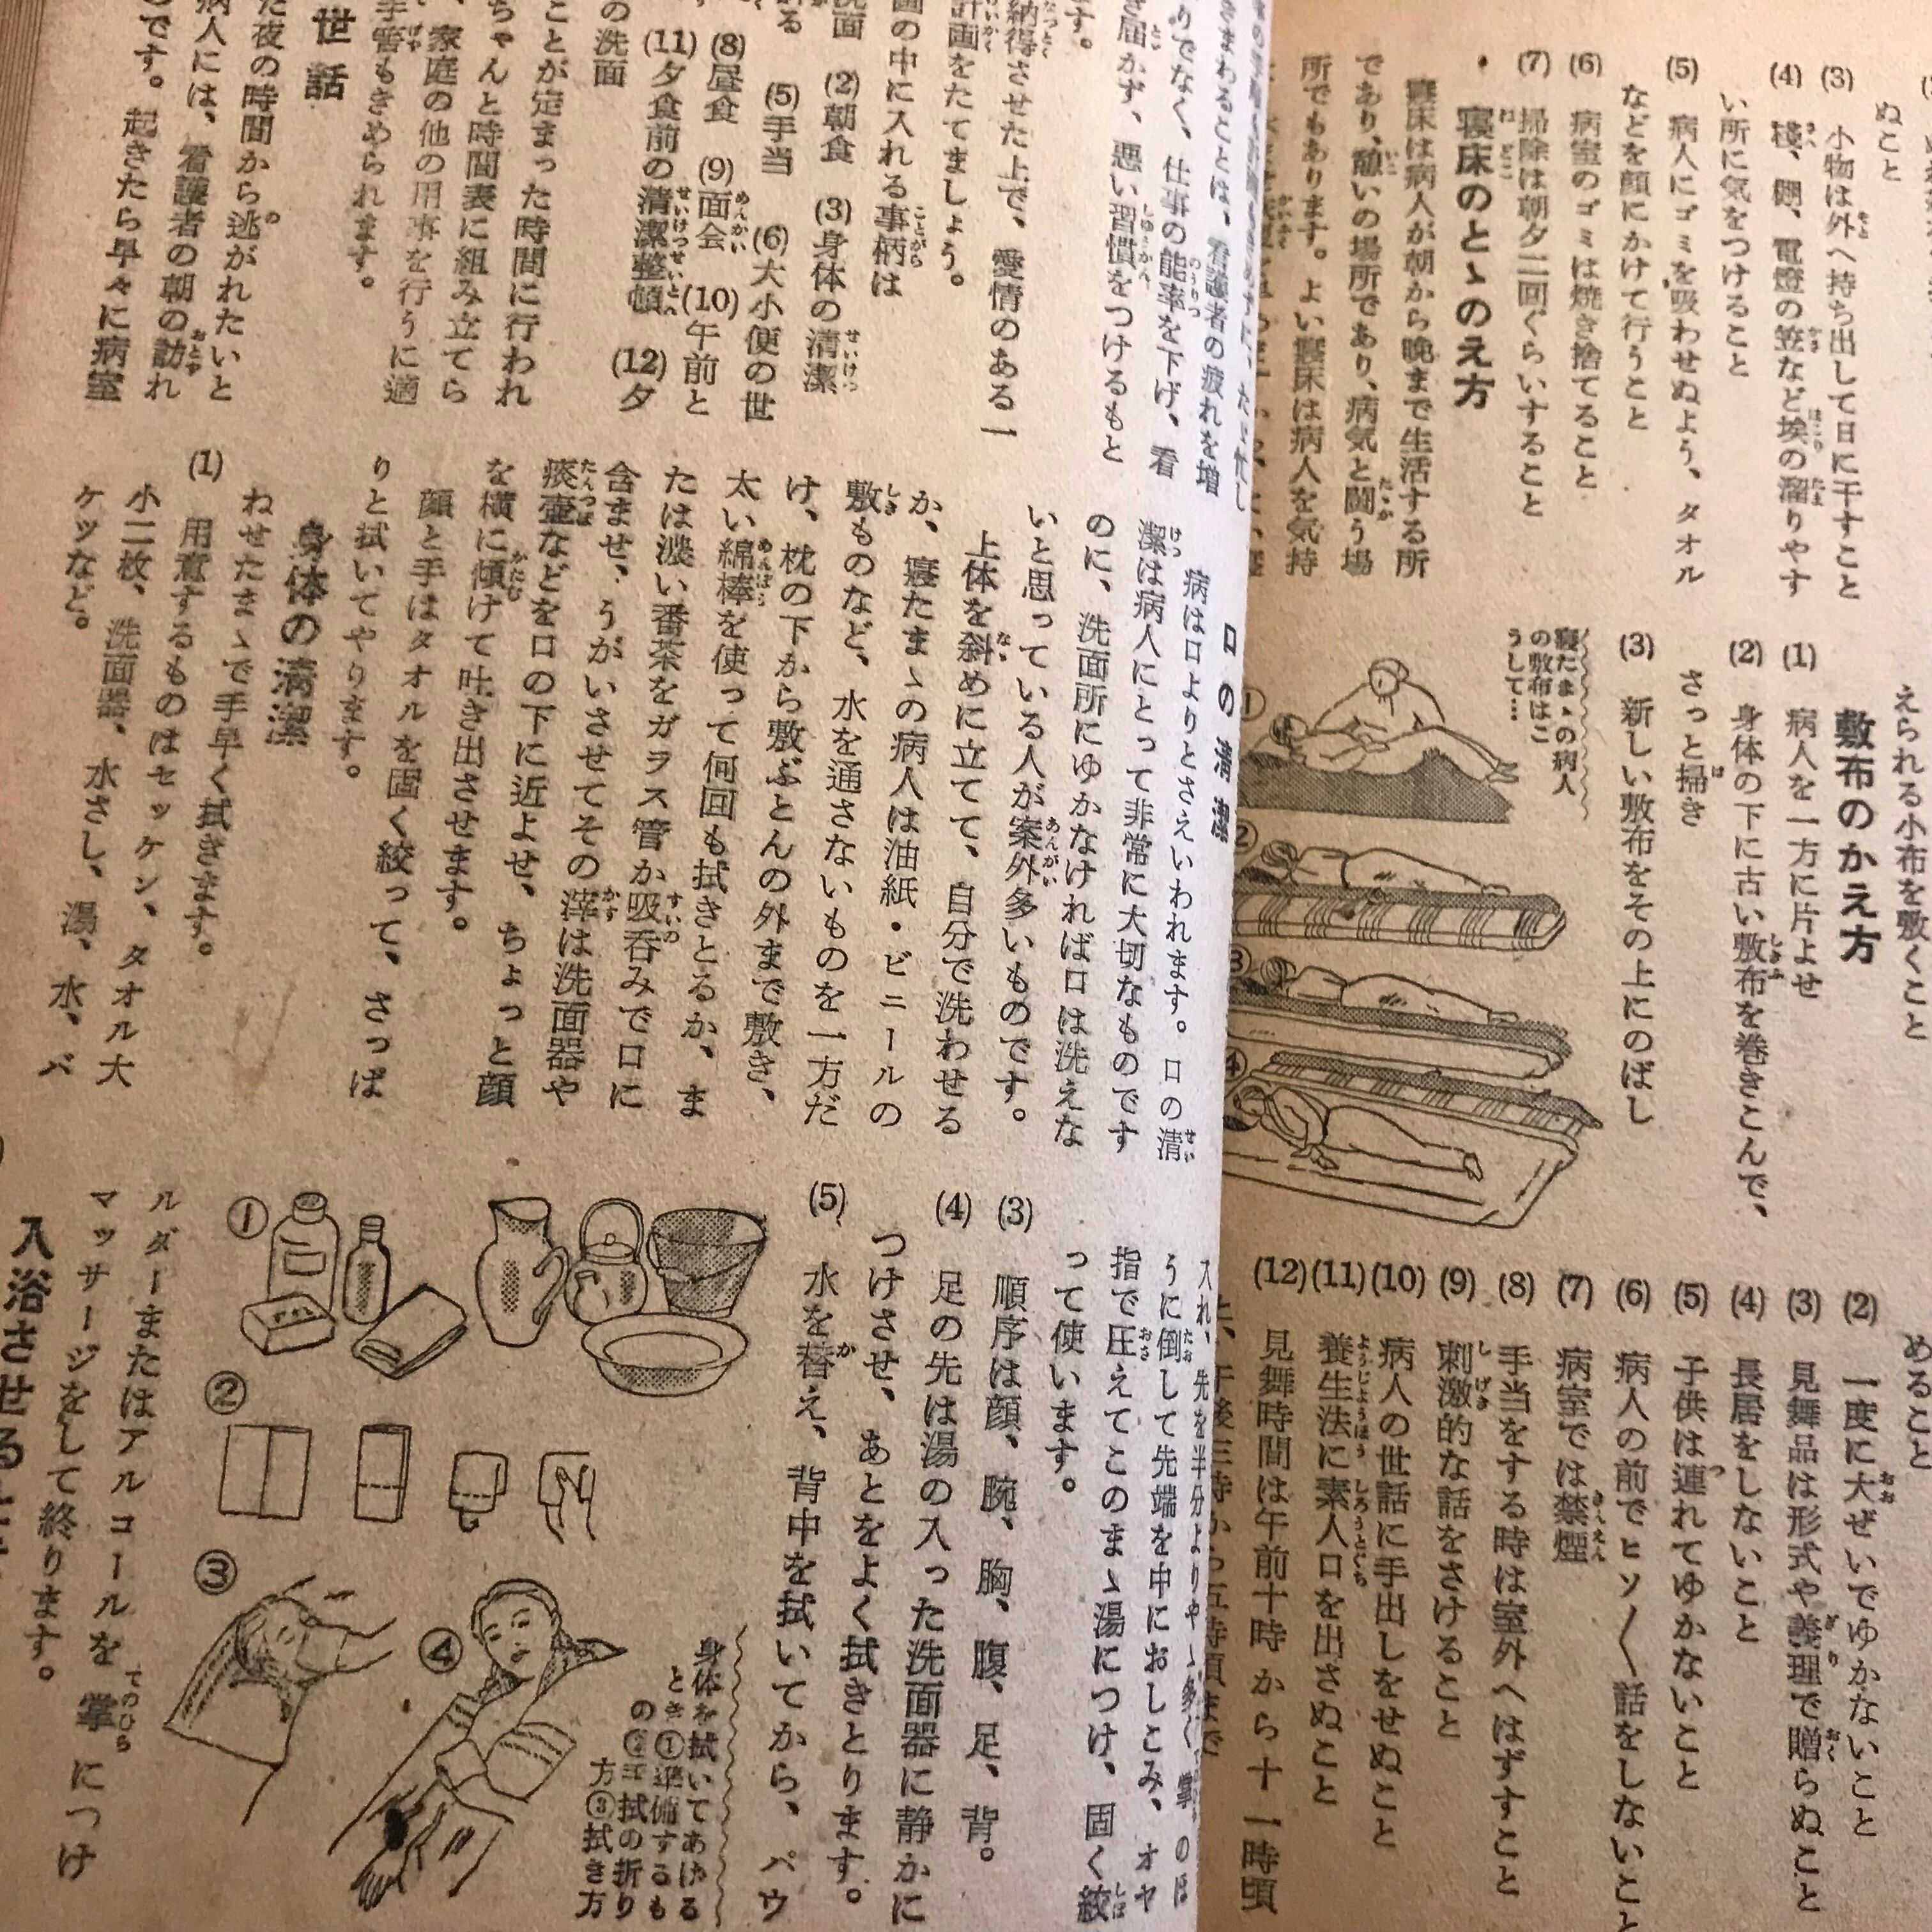 ぬこと
(3) 小物は外へ持ち出して日に干すこと
(4) 棧、棚、電燈の笠など埃の溜りやす
い所に気をつけること
(5) 病人にゴミを吸わせぬよう、タオル
などを顔にかけて行うこと
(6) 病室のゴミは焼き捨てること
(7) 掃除は朝夕二回ぐらいすること
寝床のとゝのえ方
寝床は病人が朝から晩まで生活する所
であり、憩いの場所であり、病気と闘う場
所でもあります。よい寝床は病人を気持
えられる小布を敷くこと
敷布のかえ方
(1) 病人を一方に片よせ
(2) 身体の下に古い敷布を巻きこんで、
さっと掃き
(3) 新しい敷布をその上にのばし
寝たまゝの病人
の敷布はこ
うして…
①
②
③
④
めること
(2) 一度に大ぜいでゆかないこと
(3) 見舞品は形式や義理で贈らぬこと
(4) 長居をしないこと
(5) 子供は連れてゆかないこと
(6) 病人の前でヒソ〳〵話をしないこと
(7) 病室では禁煙
(8) 手当をする時は室外へはずすこと
(9) 刺激的な話をさけること
(10) 病人の世話に手出しをせぬこと
(11) 養生法に素人口を出さぬこと
(12) 見舞時間は午前十時から十一時頃
きまわることは、看護者の疲れを増
りでなく、仕事の能率を下げ、看
届かず、悪い習慣をつけるもと
す。
納得させた上で、愛情のある一
計画をたてましょう。
画の中に入れる事柄は
洗面 (2)朝食 (3)身体の清潔
(5)手当 (6)大小便の世
(8)昼食 (9)面会 (10)午前と
(11)夕食前の清潔整頓 (12)夕
の洗面
ことが定まった時間に行われ
ちゃんと時間表に組み立てら
、家庭の他の用事を行うに適
手筈もきめられます。
世話
た夜の時間から逃がれたいと
病人には、看護者の朝の訪れ
のです。起きたら早々に病室
口の清潔
病は口よりとさえいわれます。口の清
潔は病人にとって非常に大切なものです
のに、洗面所にゆかなければ口は洗えな
いと思っている人が案外多いものです。
上体を斜めに立てて、自分で洗わせる
か、寝たまゝの病人は油紙・ビニールの
敷ものなど、水を通さないものを一方だ
け、枕の下から敷ぶとんの外まで敷き、
太い綿棒を使って何回も拭きとるか、ま
たは濃い番茶をガラス管か吸呑みで口に
含ませ、うがいさせてその滓は洗面器や
痰壷などを口の下に近よせ、ちょっと顔
を横に傾けて吐き出させます。
顔と手はタオルを固く絞って、さっぱ
りと拭いてやります。
身体の清潔
ねせたまゝで手早く拭きます。
(1) 用意するものはセッケン、タオル大
小二枚、洗面器、水さし、湯、水、バ
ケツなど。
入れ、先を半分よりやゝ多く掌のほ
うに倒して先端を中におしこみ、オヤ
指で圧えてこのまゝ湯につけ、固く絞
って使います。
(3) 順序は顔、腕、胸、腹、足、背。
(4) 足の先は湯の入った洗面器に静かに
つけさせ、あとをよく拭きとります。
(5) 水を替え、背中を拭いてから、パウ
身体を拭いてあげる
とき①準備するも
の②手拭の折り
方③拭き方
①
②
③
④
ルダーまたはアルコールを掌につけ
マッサージをして終ります。
入浴させる